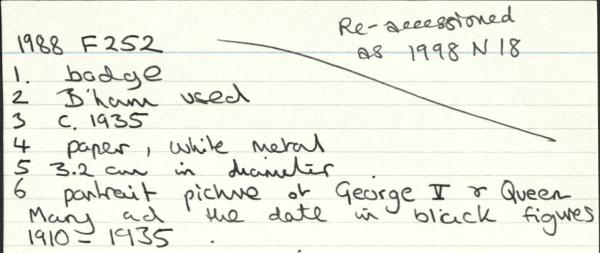 1988 F252
Re-accessioned
as 1998 N 18
1. badge
2 B'ham used
3 c. 1935
4 paper, white metal
5 3.2 cm in diameter
6 portrait picture of George V & Queen
Mary ad the date in black figures
1910 - 1935 .